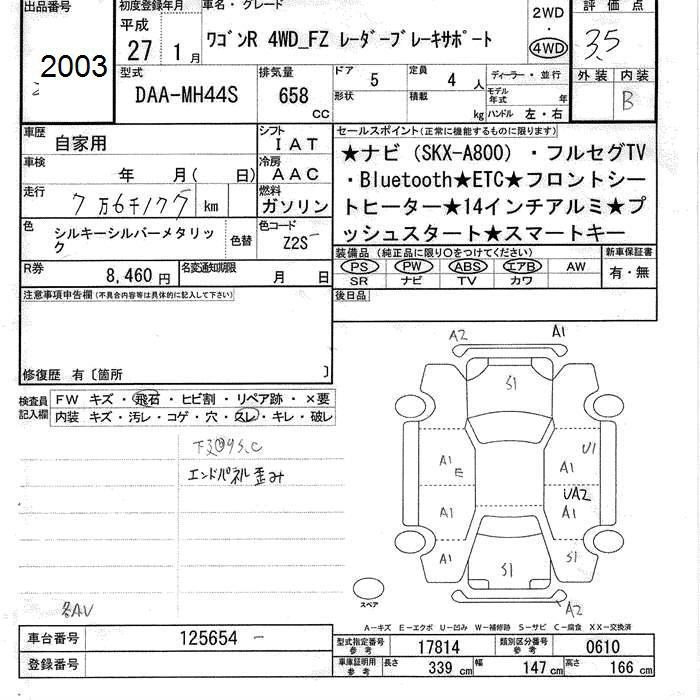 出品番号
2003
初度登録年月
平成
27 1月
車名・グレード
ワゴンR 4WD_FZ レーダーブレーキサポート
2WD
4WD
評価点
3.5
外装 内装
B
型式
DAA-MH44S
排気量
658
cc
ドア
5
形状
定員
4 人
積載
kg
ディーラー・並行
モデル年式 年
ハンドル 左・右
車歴
自家用
シフト
IAT
車検
年 月( 日)
冷房
AAC
走行
7万6千175 km
燃料
ガソリン
色
シルキーシルバーメタリック
色替
色コード
Z2S
R券
8,460 円
名変通知期限
月 日
セールスポイント(正常に機能するものに限ります)
★ナビ(SKX-A800)・フルセグTV
・Bluetooth★ETC★フロントシー
トヒーター★14インチアルミ★プ
ッシュスタート★スマートキー
装備品(純正品に限り○をつけてください)
PS PW ABS エアB AW
SR ナビ TV カワ
新車保証書
有・無
後日品
注意事項申告欄(不具合内容等は具体的に記入して下さい)
修復歴 有〔箇所 〕
検査員記入欄
FW キズ・飛石・ヒビ割・リペア跡・×要
内装 キズ・汚レ・コゲ・穴・スレ・キレ・破レ
エンドパネル歪み
A2
A1
S1
A1
E
U1
A1
UA2
A1
A1
A1
S1
S1
A2
スペア
A-キズ E-エクボ U-凹み W-補修跡 S-サビ C-腐食 XX-交換済
車台番号 125654 -
登録番号
型式指定番号参考 17814 類別区分番号参考 0610
車庫証明用参考 長さ 339 cm 幅 147 cm 高さ 166 cm